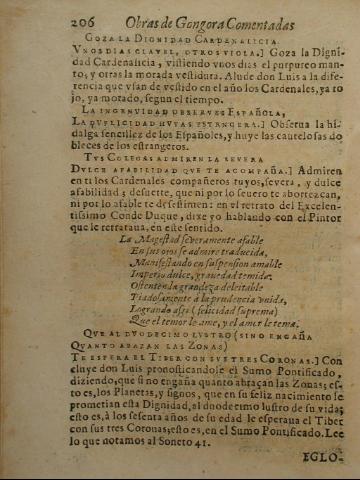 206 Obras de Gongora Comentadas
GOZA LA DIGNIDAD CARDENALICIA
VNOS DIAS CLAVEL, OTROS VIOLA.] Goza la Digni-
dad Cardenalicia, vistiendo vnos dias el purpureo man-
to, y otras la morada vestidura. Alude don Luis a la dife-
rencia que vsan de vestido en el año los Cardenales, ya ro
jo, ya morado, segun el tiempo.
LA INGENVIDAD OBSERVES ESPAÑOLA,
LA DVPLICIDAD HVYAS ESTRANGERA.] Obserua la hi-
dalga sencillez de los Españoles, y huye las cautelosas do
bleces de los estrangeros.
TVS COLEGAS ADMIREN LA SEVERA
DVLCE AFABILIDAD QVE TE ACOMPAÑA.] Admiren
en ti los Cardenales compañeros tuyos, severa, y dulce
afabilidad; de suerte, que ni por lo seuero te aborrezcan,
ni por lo afable te desestimen: en vn retrato del Excelen-
tissimo Conde Duque, dixe yo hablando con el Pintor
que le retrataua, en este sentido.
La Magestad seueramente afable
En sus ojos se admire traducida,
Manifestando en suspension amable
Imperio dulce, grauedad temida.
Ostente la grandeza deleitable
Piadosamente à la prudencia vnida,
Logrando assi (felicidad suprema)
Que el temor le ame, y el amor le tema.
QVE AL DVODECIMO LVSTRO (SI NO ENGAÑA
QVANTO ABAZAN LAS ZONAS)
TE ESPERA EL TIBER CON SVS TRES CORONAS.] Con
cluye don Luis pronosticandole el Sumo Pontificado,
diziendo, que si no engaña quanto abraçan las Zonas; es-
to es, los Planetas, y signos, que en su feliz nacimiento le
prometian esta Dignidad, al duodecimo lustro de su vida;
esto es, à los sesenta años de su edad le esperaua el Tiber
con sus tres Coronas; esto es, en el Sumo Pontificado. Lee
lo que notamos al Soneto 41.
EGLO-